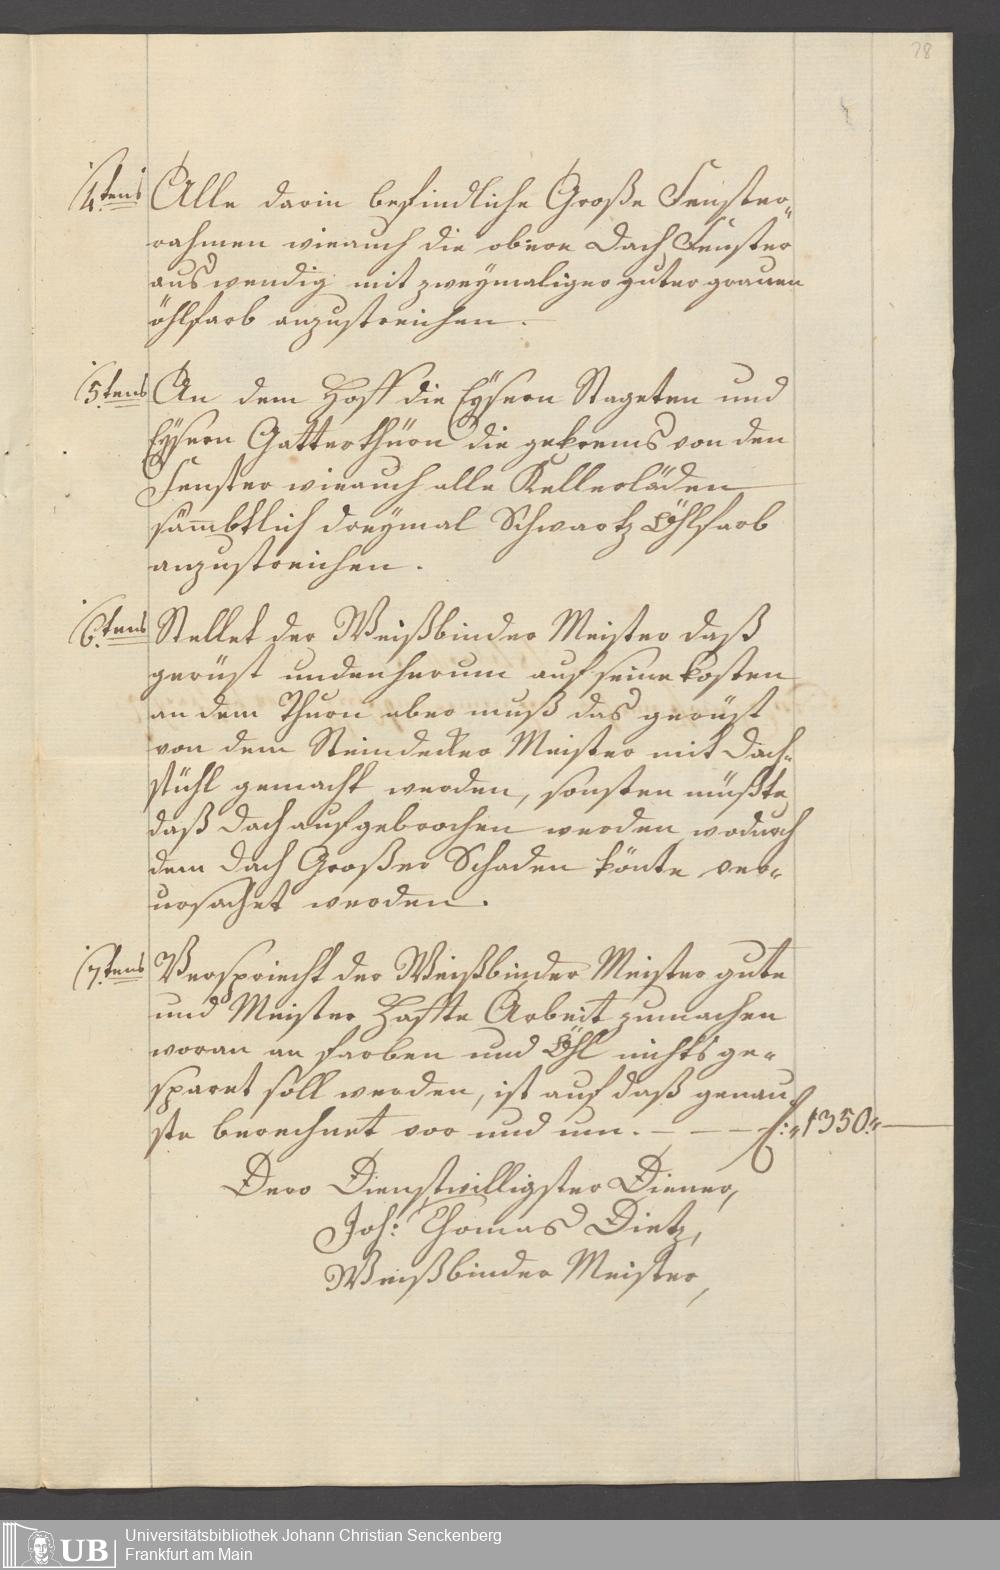 28
4.tens Alle darin befindliche Große Fenster„
rahmen wieauch die obere Dach Fenster
auswendig mit zweymaliger guter grauen
öhlfarb anzustreichen.
5.tens An dem Hoff die Eÿsern Stageten und
Eÿsern Gatterthüren die gekrems von den
Fenster wieauch alle Kellerläden
sämbtlich dreymal Schwartz Öhlfarb
anzustreichen.
6.tens Stellet der Weißbinder Meister daß
gerüst undenherum auf seine kosten
an dem Thurn aber muß das gerüst
von dem Steindecker Meister mit Dach-
stühl gemacht werden, sonsten müßte
daß Dach aufgebrochen werden wodurch
dem Dach Großer Schaden könte ver-
ursachet werden.
7.tens Verspriecht der Weißbinder Meister gute
und Meister Haffte Arbeit zumachen
woran an farben und Öhl nichts ge-
sparet soll werden, ist auf daß genau
ste berechnet vor und um. — — — f: „1350.„ —
Dero Dienstwilligster Diener,
Joh: Thomas Dietz,
Weißbinder Meister,
UB
Universitätsbibliothek Johann Christian Senckenberg
Frankfurt am Main